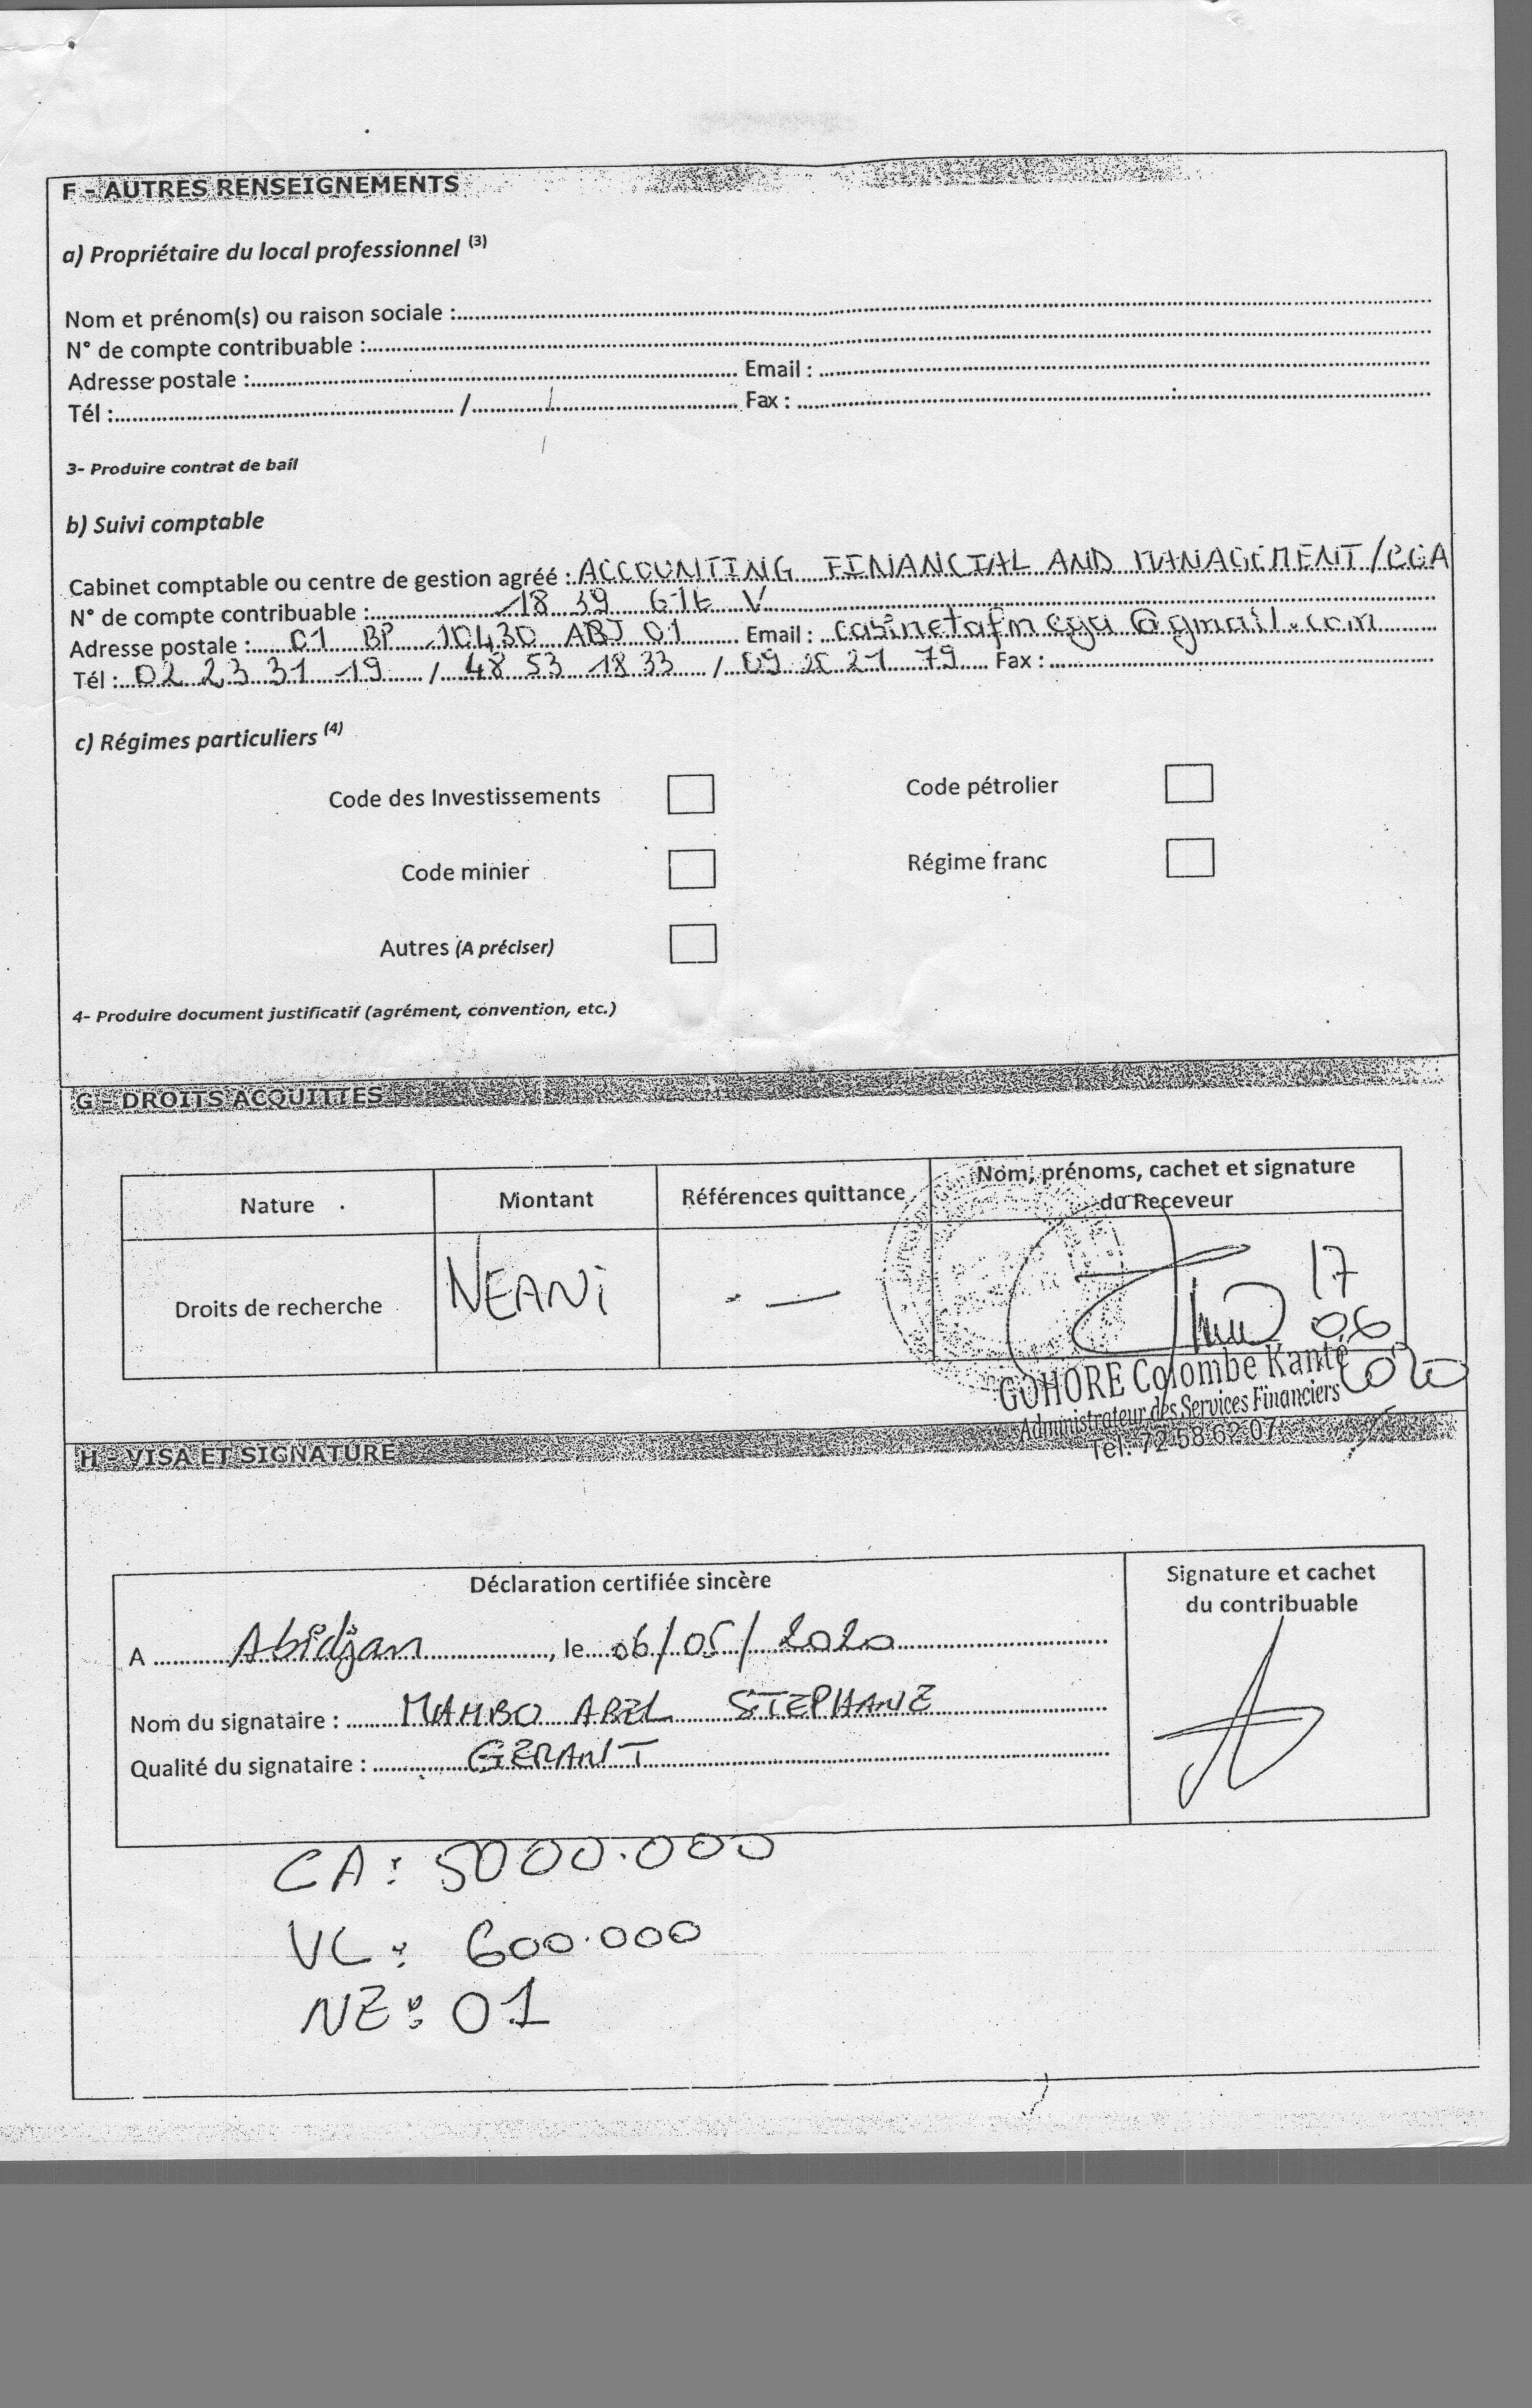 F - AUTRES RENSEIGNEMENTS
a) Propriétaire du local professionnel (3)
Nom et prénom(s) ou raison sociale :
N° de compte contribuable :
Adresse postale : Email :
Tél : / Fax :
3- Produire contrat de bail
b) Suivi comptable
Cabinet comptable ou centre de gestion agréé : ACCOUNTING FINANCIAL AND MANAGEMENT/CGA
N° de compte contribuable : 18 39 V
Adresse postale : 01 BP 10430 ABJ 01 Email : cabinetafmcga@gmail.com
Tél : 02 23 31 19 / 48 53 18 33 / 09 21 79 Fax :
c) Régimes particuliers (4)
Code des Investissements Code pétrolier
Code minier Régime franc
Autres (A préciser)
4- Produire document justificatif (agrément, convention, etc.)
G - DROITS ACQUITTES
Nature Montant Références quittance Nom, prénoms, cachet et signature
du Receveur
Droits de recherche NEANT - — 17
06
2020
GOHORE Colombe Kanté
Administrateur des Services Financiers
Tel: 72 58 62 07
H - VISA ET SIGNATURE
Déclaration certifiée sincère Signature et cachet
du contribuable
A Abidjan, le 06/05/2020
Nom du signataire : MAMBO ABEL STEPHANE
Qualité du signataire : GERANT
CA: 5000.000
VL: 600.000
NE: 01